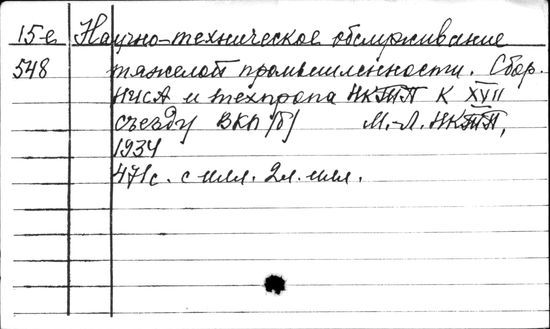 15-е Научно-техническое обслуживание
548 тяжелой промышленности. Сбор.
НИСА и техпропа НКТП К XVII
съезду ВКП(б) М.-Л. НКТП,
1934
471с. с илл. 2л. илл.